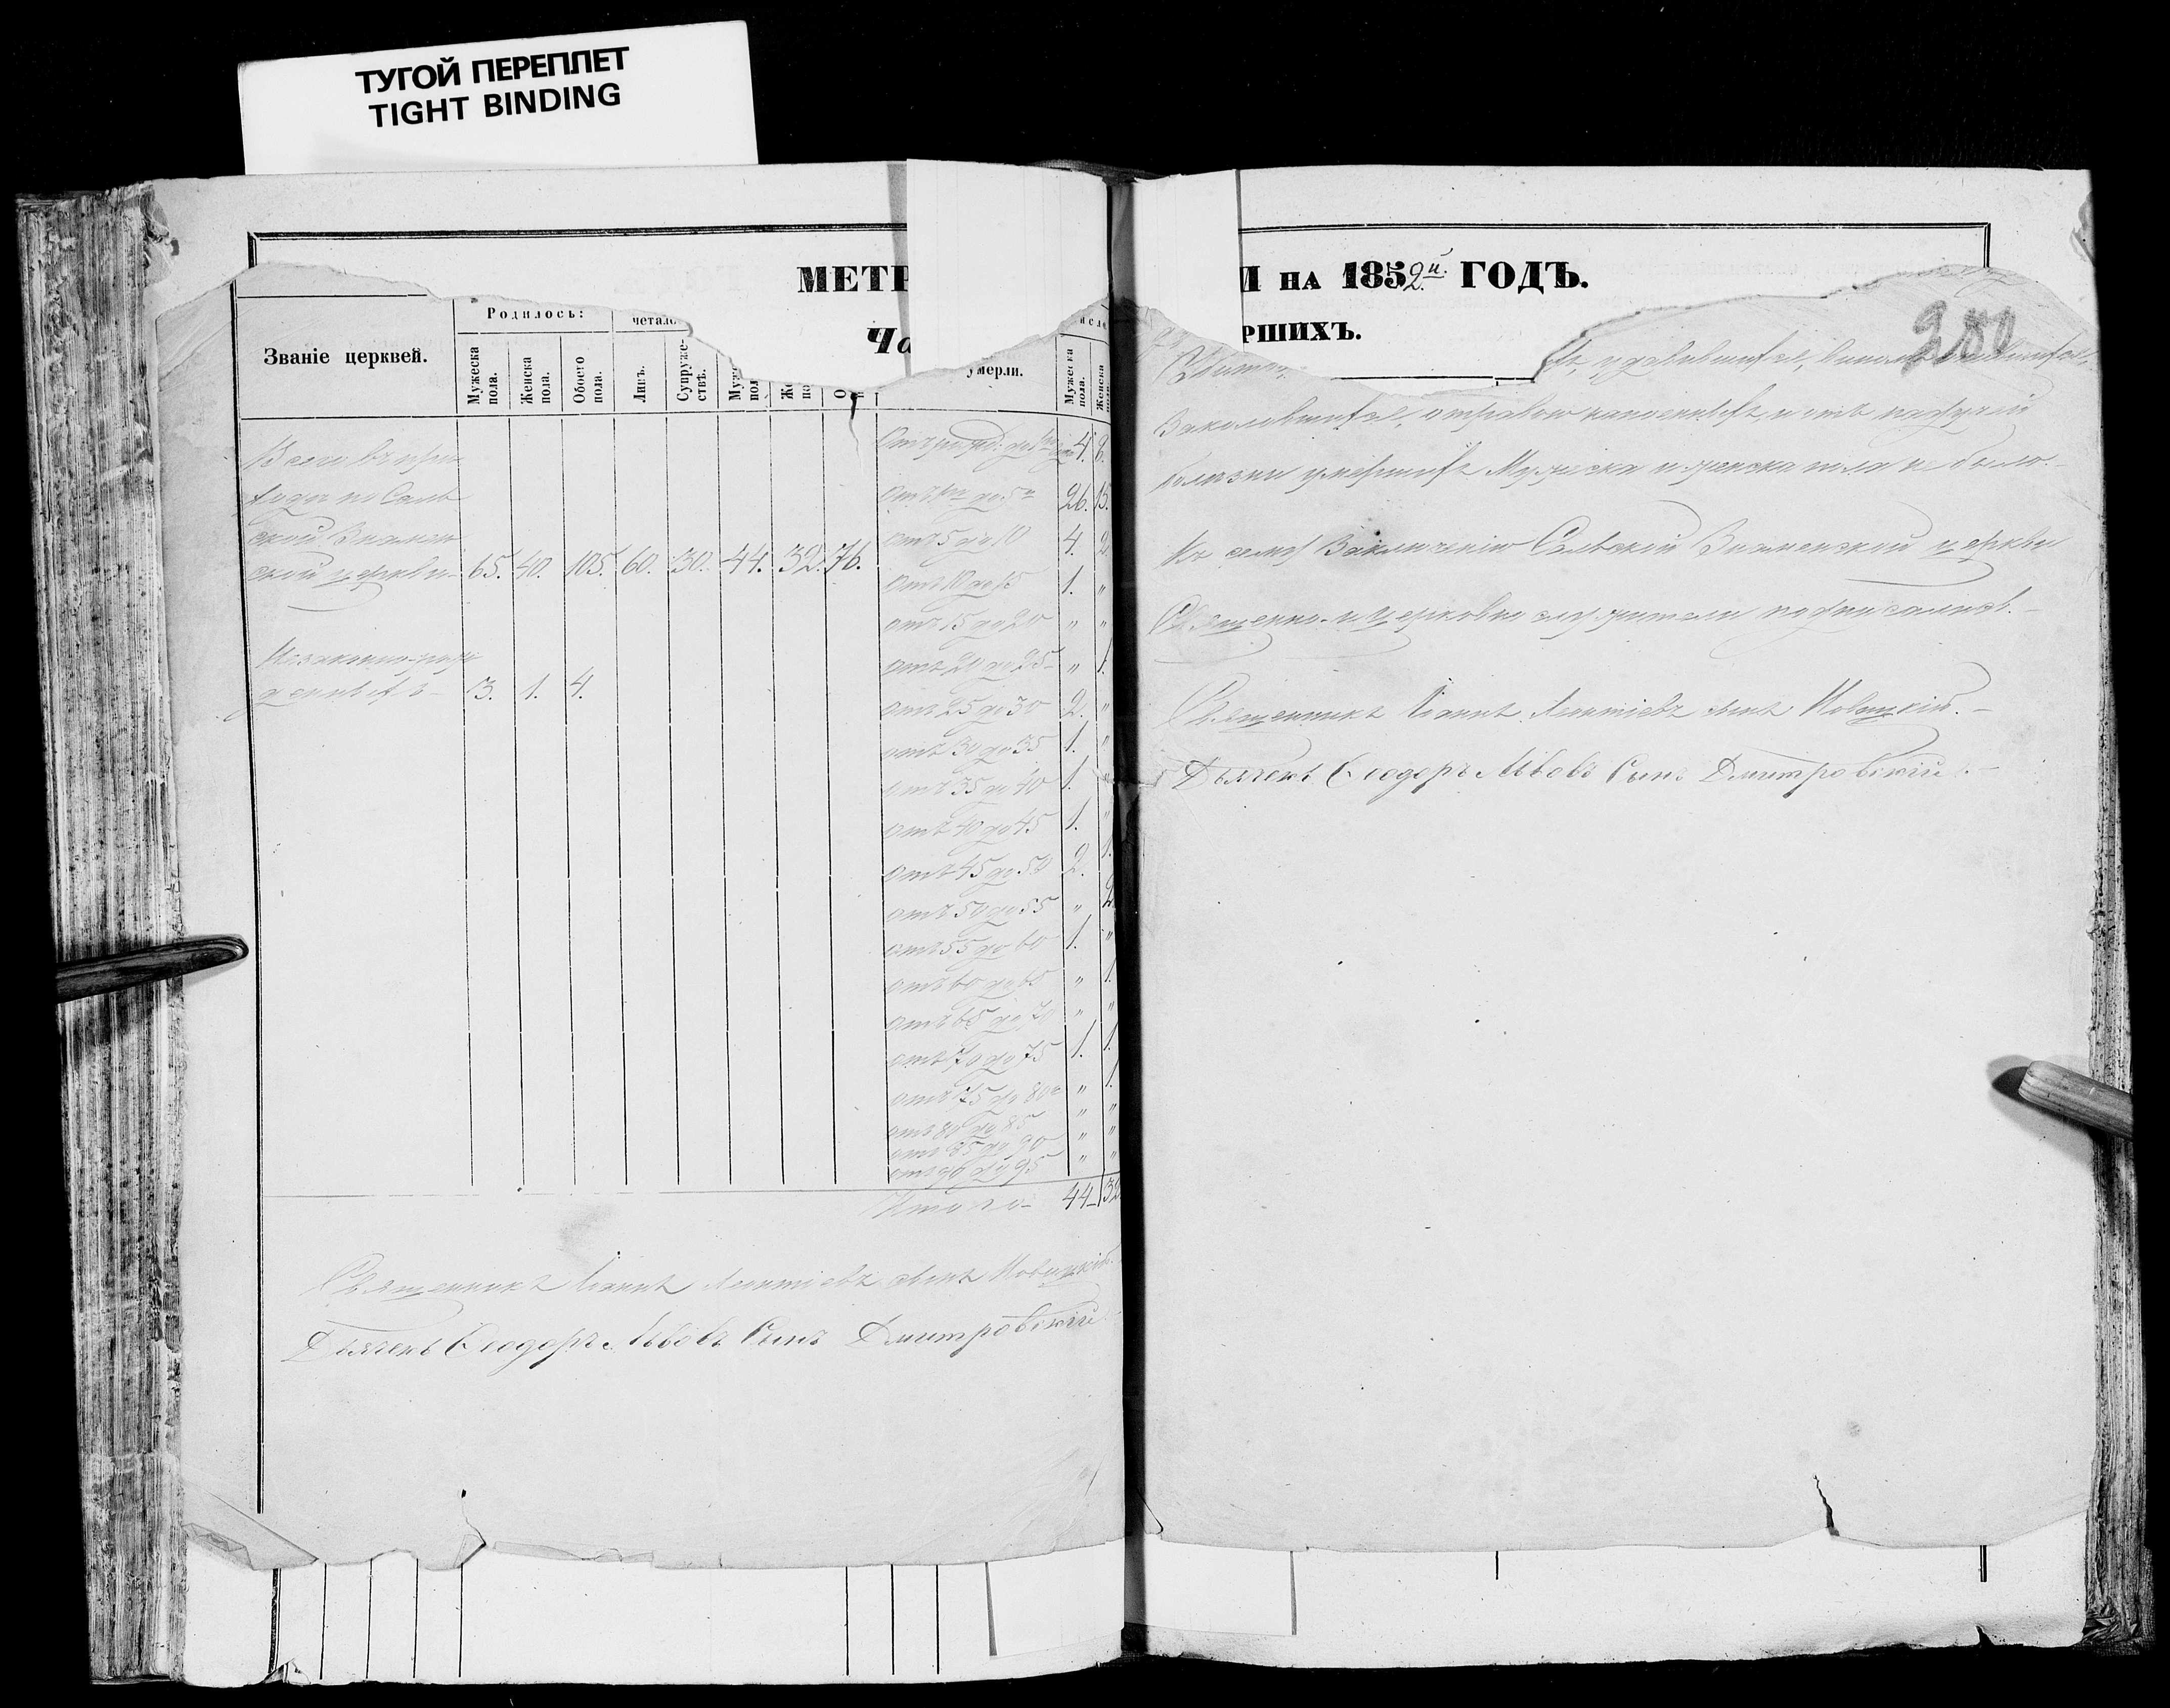 ТУГОЙ ПЕРЕПЛЕТ
TIGHT BINDING
МЕТР
И НА 1852й. ГОДЪ.
Ча
РШИХЪ.
280
Званіе церквей.
Родилось:
четало
умерли.
Мужеска пола.
Женска пола.
Обоего пола.
Лицъ.
Супружествѣ.
Мужеска пола.
Женска пола.
Всего въ при-
ходѣ по Сель-
ской Знамен-
ской церкви 65. 40. 105. 60. 30. 44. 32. 76.
Незаконно-рож-
денныхъ 3. 1. 4.
от 1го до 5и 26. 15.
отъ 5 до 10 4. 2
отъ 10 до 15 1. "
отъ 15 до 20 " "
отъ 20 до 25 " 1.
отъ 25 до 30 2. "
отъ 30 до 35 1. "
отъ 35 до 40 1. "
отъ 40 до 45 1. "
отъ 45 до 50 2. 1.
отъ 50 до 55 " 2
отъ 55 до 60 1. "
отъ 60 до 65 " 1.
отъ 65 до 70 " "
отъ 70 до 75 1. 1.
отъ 75 до 80 " 1.
отъ 80 до 85 " "
отъ 85 до 90 " "
отъ 90 до 95 " "
Итого 44 32
Священникъ Іоаннъ Леонтіевъ сынъ Новицкій.
Дьячекъ Ѳеодоръ Львовъ Сынъ Дмитровскій
удавившихся,
Заколовшихся, отравою и отъ падучей
болезни умершихъ Мужеска и женска пола не было.
Къ сему Заключенію Сельской Знаменской церкви
Священно-и церковно служители подписались.
Священникъ Іоаннъ Леонтіевъ сынъ Новицкій.
Дьячекъ Ѳеодоръ Львовъ Сынъ Дмитровскій.